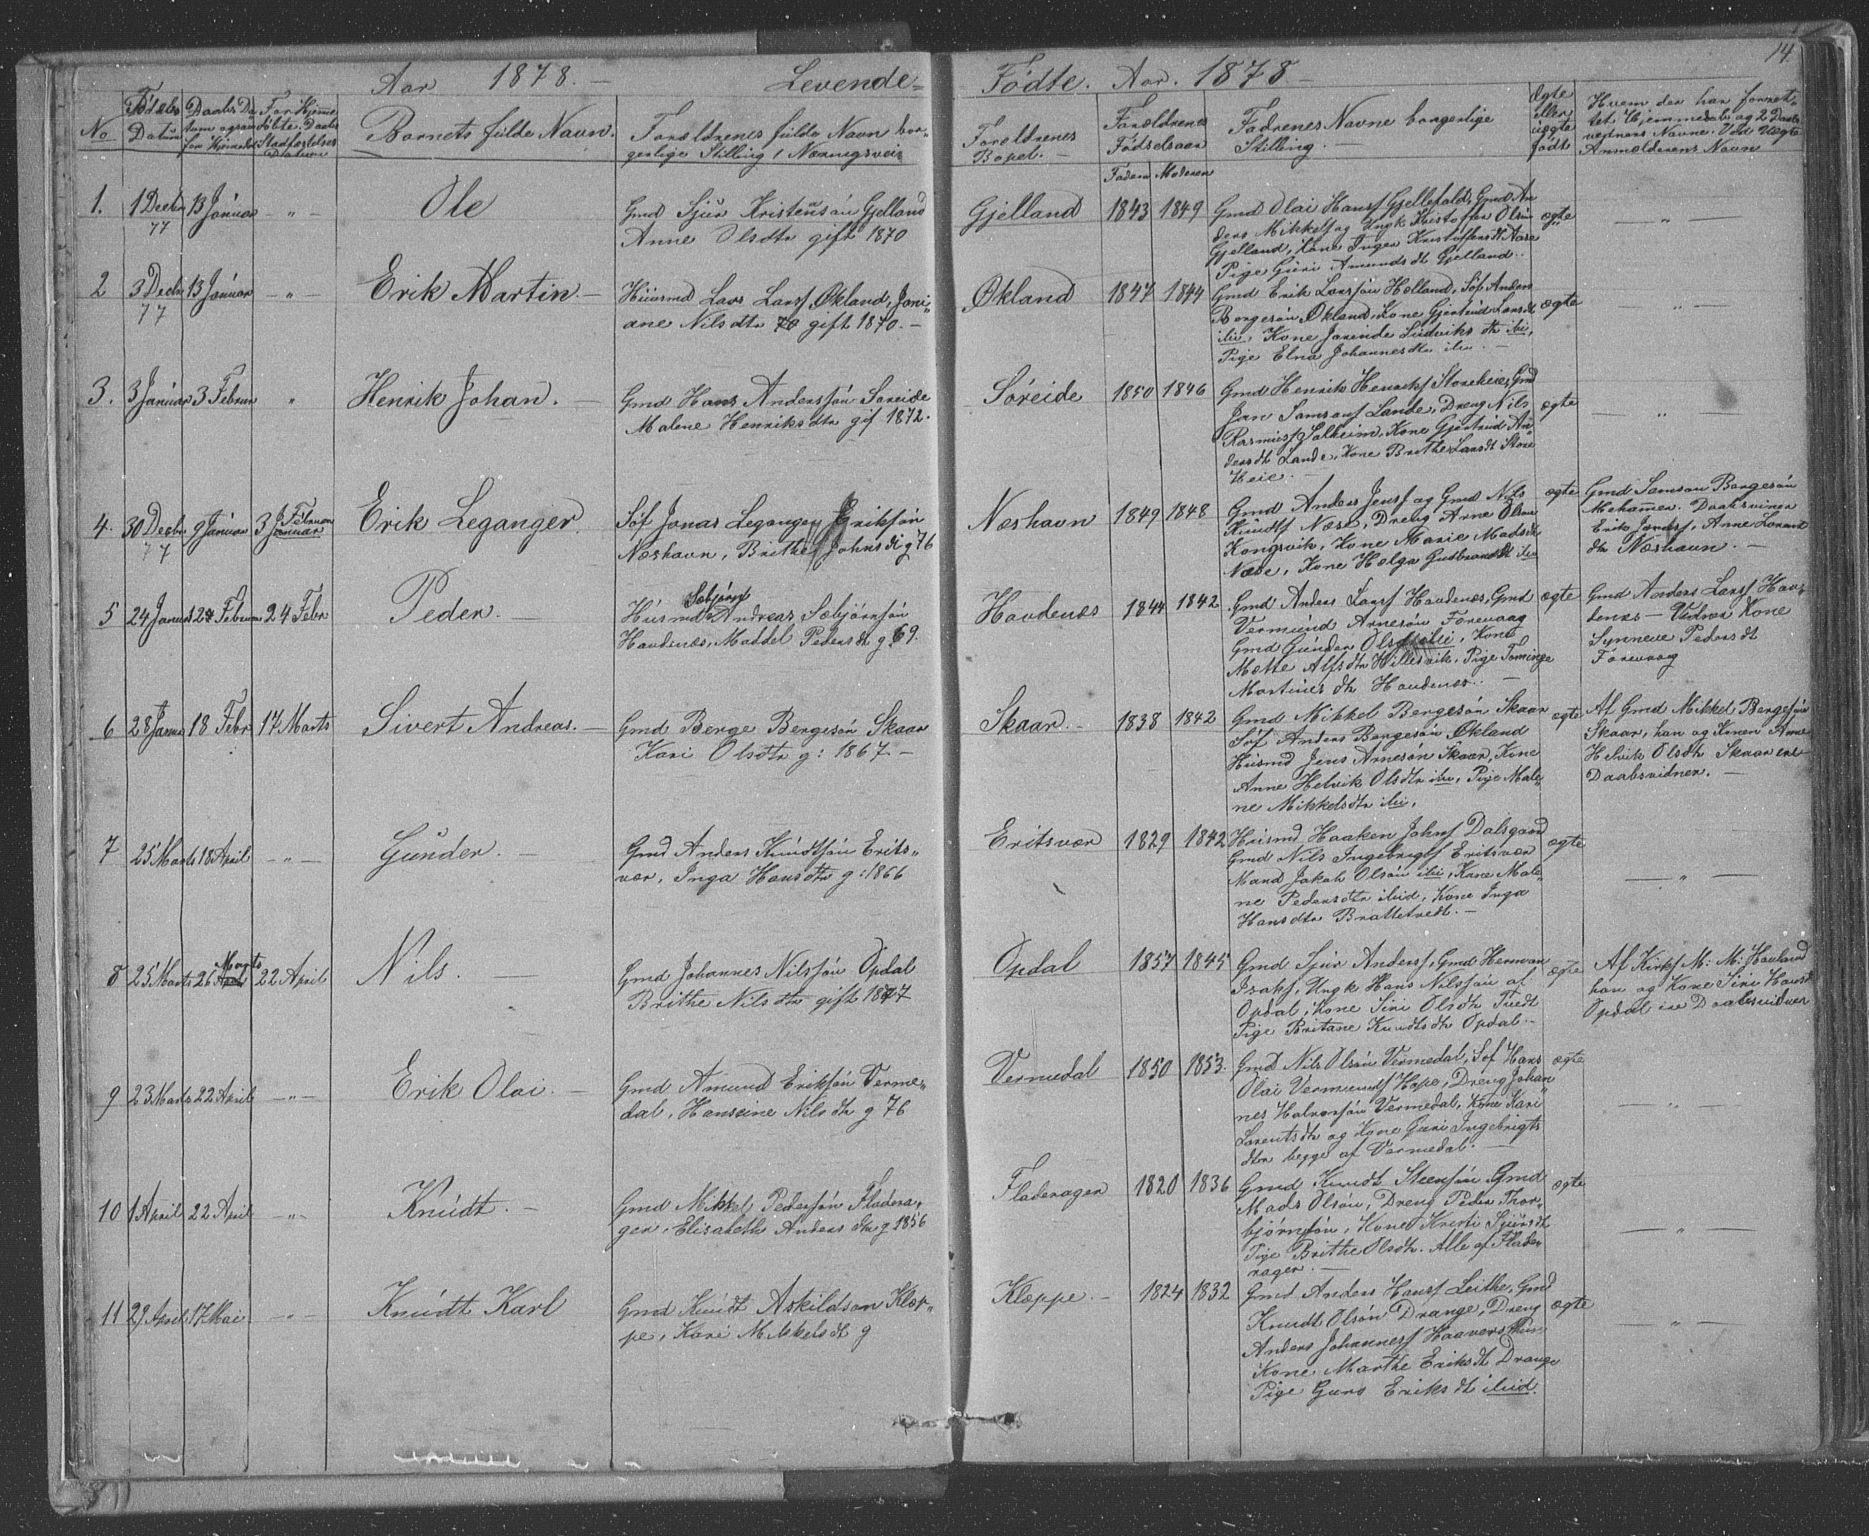 14
Aar 1878. — Levende=
Födte. Aar. 1878
No
Födsels Datum
Daabs Da
Bornets fulde Navn.
Foraldrenes fulde Navn bor-
gerlige Stilling / Næringsvei
Foraldrenes
Bopel. —
Foraldrenes
Födselsaar
Faderen Moderen
Fadrenes Navne borgerlige
Stilling. —
Ægte
eller
uægte
födt
Hvem der har forret-
tet Hjemmedab og 2 Daabs
vidners Navne. Ved Uægte
Anmelderens Navn
1. 1 Decbr 77 13 Januar — " — Ole
Gmd Sjur Kristensön Gjelland
Anne Olsdtr gift 1870
Gjelland 1843 1849
Gmd Olai Hansf Gjellefald, Gmd An
ders Mikkelf og Ungk Kristoffer Olsön
Gjelland, Kone Inger Kristoffersdt Aase
Pige Guri Amundsdt Gjelland.
ægte — " —
2 3 Decbr 77 13 Januar — " — Erik Martin. —
Huusmd Lars Larsf Økland, Joni-
ane Nilsdtr 70 gift 1870. —
Økland 1847 1844
Gmd Erik Larsson Hælland, Söf Anders
Borgesön Økland, Kone Gjertrud Larsdt
ibi, Kone Jorinde Ludviks dtr ibi,
Pige Elna Johannesdtr ibi. —
ægte — " —
3. 3 Januar 3 Februar " Henrik Johan. —
Gmd Hans Anderssön Soreide
Malene Henriksdtr gif 1872.
Söreide 1850 1846
Gmd Henrik Henrikf Storeheie, Gmd
Jon Samsonf Lande, Dreng Nils
Rasmusf Solheim, Kone Gjertrud An-
dersdt Lande, Kone Brithe Larsdt Store
Heie. —
ægte — " —
4. 30 Decbr 77 9 Januar 3 Februar Januar Erik Leganger
Söf Jonas Leganger Eriksön
Næshavn, Brithe Johnsdt g 76
Næshavn 1849 1848
Gmd Anders Jensf og Gmd Nils
Knudtf Næse, Dreng Arne Olsen
Kongsvik, Kone Marie Madsdt
Næse, Kone Helga Gudbrandsdt ibi
ægte
Gmd Samson Borgesön
Mehamer. Daabsvidner
Erik Jonasf, Anne Lorent
dtr Næshavn. —
5 24 Januar 24 Februar 24 Febr Peder. —
Söbjörn
Husmd Andreas Söbjörnsön
Havdenæs, Maddel Pedersdt g 69.
Havdenæs 1844 1842
Gmd Anders Larsf Havdenæs, Gmd
Vermund Arnesön Forevaag
Gmd Gunder Olsön ibi, Kone
Mætte Alfsdtr Hillesvik, Pige Tominge
Martines dtr Havdenæs. —
ægte
Gmd Anders Larsf Hav-
denæs — Vidner Kone
Synneve Pedersdt
Forevaag
6 28 Janua 18 Febr 17 Marts Sivert Andreas. —
Gmd Berge Bergesön Skaar
Kari Olsdtr g: 1867 —
Skaar. — 1838 1842
Gmd Mikkel Bergesön Skaar
Söf Anders Borgesön Økland
Husmd Jens Arnesön Skaar, Kone
Anne Helvik Olsdtr ibi, Pige Male-
ne Mikkelsdtr ibi.
ægte
Af Gmd Mikkel Bergesön
Skaar, han og Konen Anne
Helvik Olsdtr Skaar ere
Daabsvidner. —
7 25 Marts 18 April — " — Gunder. —
Gmd Anders Knudtsön Erits-
vær, Inga Hansdtr g: 1866
Eritsvær 1829 1842
Husmd Haaken Johnf Dalsgaard
Gmd Nils Ingebrigtf Eritsvær
Mand Jakob Olsön ibi, Kone Male-
ne Pedersdtr ibid, Kone Inga
Hansdtr Brattetvedt. —
ægte — " —
8 25 Marts 26 Marts 22 April Nils. —
Gmd Johannes Nilssön Opdal
Brithe Nilsdtr gift 1877
Opdal 1857 1845
Gmd Sjur Andersf, Gmd Herman
Isakf, Ungk Hans Nilssön af
Opdal, Kone Siri Olsdtr Tuedt
Pige Britane Knudtsdtr Opdal. —
ægte
Af Kirkf M: M: Hauland
han og Kone Siri Hansdt
Opdal ere Daabsvidner
9 23 Marts 22 April — " — Erik Olai. —
Gmd Amund Eriksön Verme-
dal, Hanseine Nilsdtr g 76
Vermedal 1850 1853.
Gmd Nils Olsön Vermedal, Söf Hans
Olai Vermundf Hope, Dreng Johan
nes Halvorsön Vermedal, Kone Kari
Lorentsdtr og Kone Guri Ingebrigts
dtr begge af Vermedal. —
ægte — " —
10 1 April 22 April — " — Knudt. —
Gmd Mikkel Pedersön Fladera-
ger, Elisabeth Anders dtr g 1856
Fladerager 1820 1836
Gmd Knudt Steensön, Gmd
Mads Olsön, Dreng Peder Thor
björnsön, Kone Kristi Sjursdt
Pige Brithe Olsdtr. Alle af Flade-
rager. —
ægte — " —
11 29 April 17 Mai — " — Knudt Karl
Gmd Knudt Askildson Klæp-
pe, Kari Mikkelsdt g
Klæppe. — 1824 1832
Gmd Anders Hansf Leithe, Gmd
Knudt Olsön Drange, Dreng
Anders Johannesf Haaversthun
Kone Marthe Eriksdt Drange
Pige Guro Eriksdt ibid.
ægte — " —